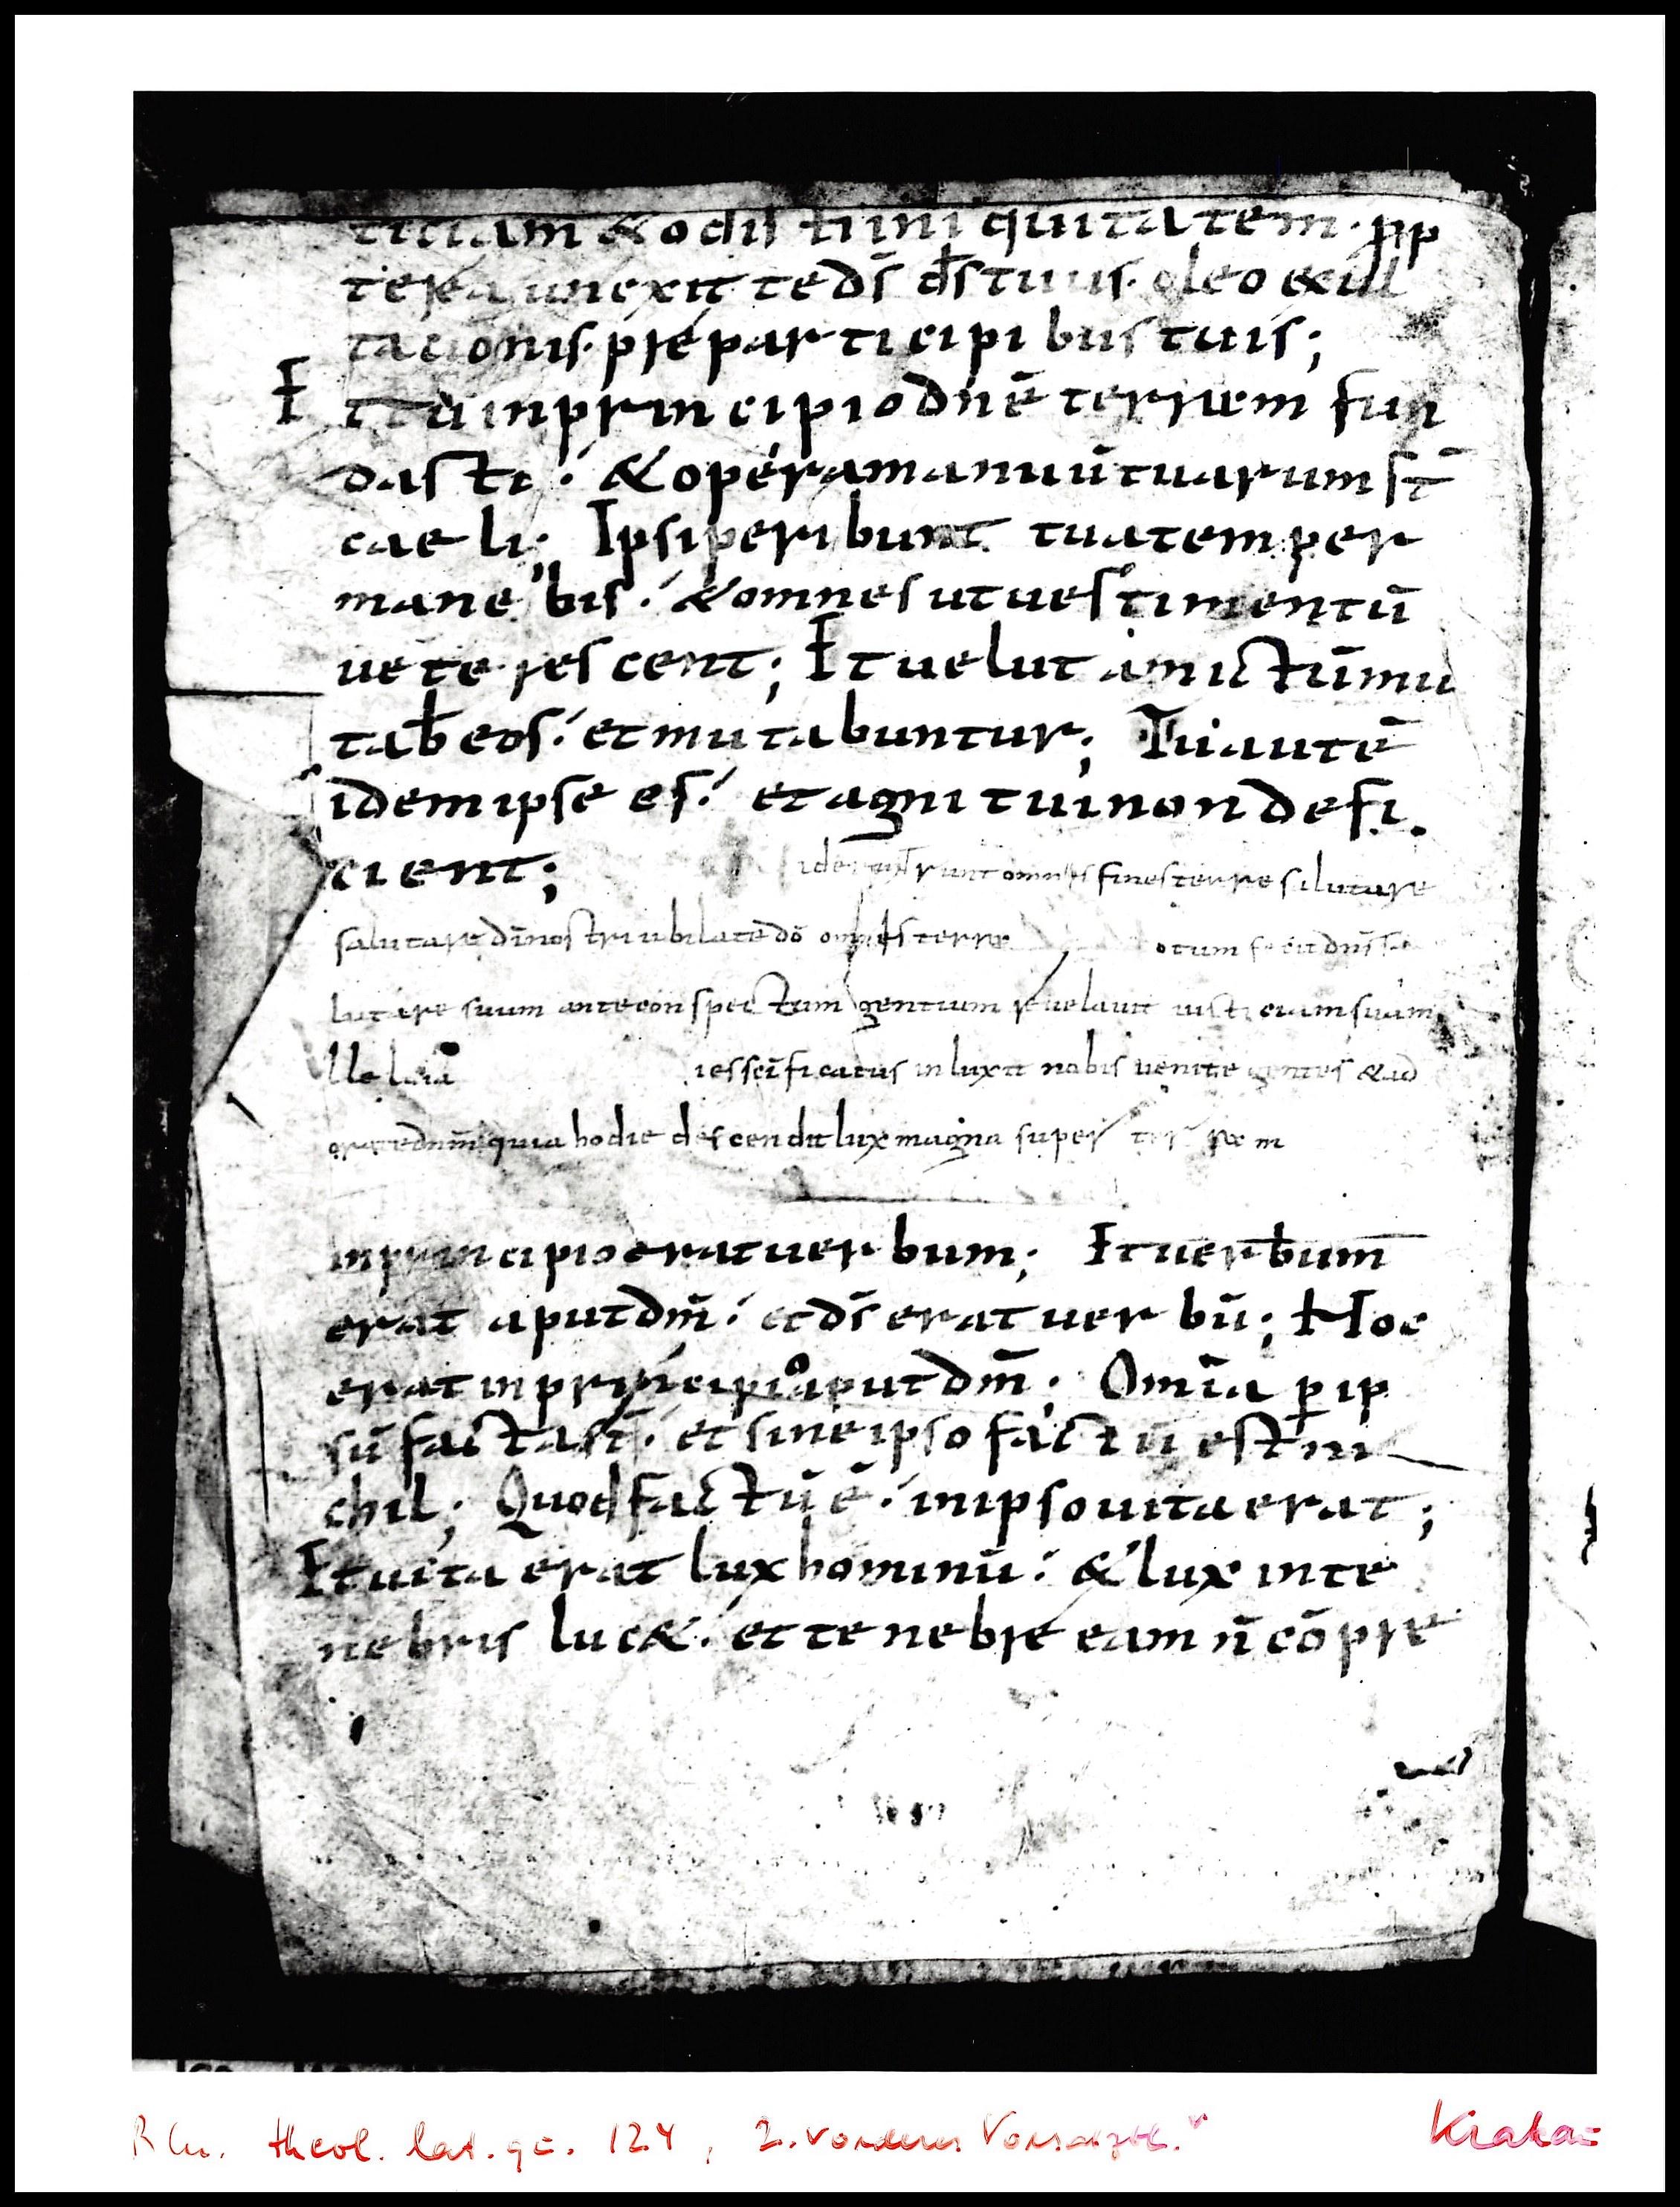 ticiam & odisti iniquitatem· prop
terea unexit te ds̄ ds̄ tuus· oleo exul
tacionis· pre participibus tuis;
Et tu in principio dn̄e terram fun
dasti; & opera manuū tuarum st̄
caeli; Ipsi peribunt tu autem per
manebis; & omnes ut uestimentū
ueterescent; Et uelut amictū mu
tab eos; et mutabuntur; Tu autē
idem ipse es; et agni tui non defi
cient; ider runt omnes fines terre salutare
salutare dī nostri iubilate dō omnes terre otum fecit dns̄ sa
lutare suum ante conspectum gentium reuelauit iusticiam suam
lleluia ies scīficatus inluxit nobis uenite gentes & ad
orate dnm̄ quia hodie descendit lux magna super terram
in principio erat uerbum; Et uerbum
erat aput dm̄; et ds̄ erat uerbū; Hoc
erat in principio aput dm̄; Omīa p ip
sū facta st̄; et sine ipso factū est ni
chil; Quod factū ē; in ipso uita erat;
Et uita erat lux hominū; & lux in te
nebris luc&; et tenebre eam n̄ cōpre
theol. lat. qu. 124, 2. vorderes Vorsatzbl.
Krakau